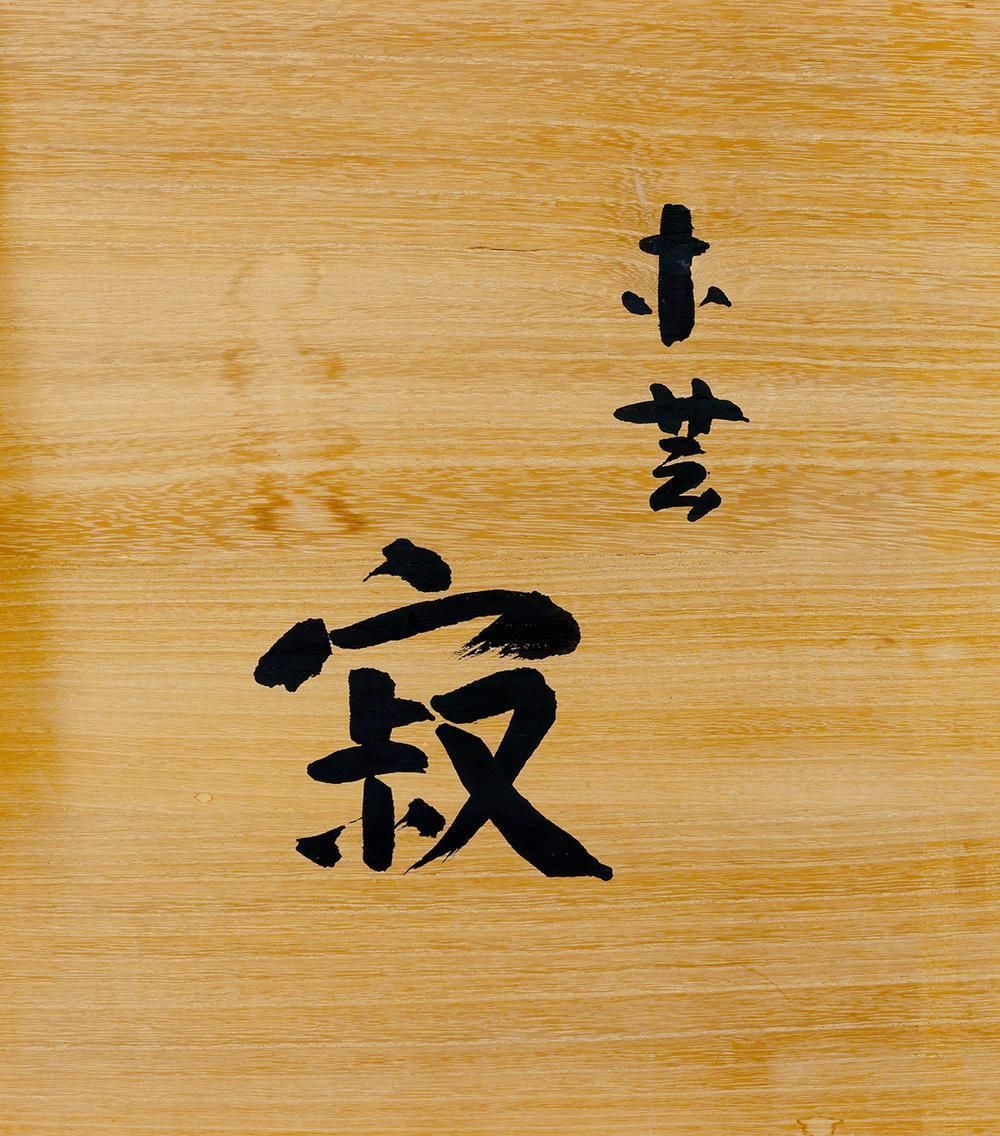 木芸
寂